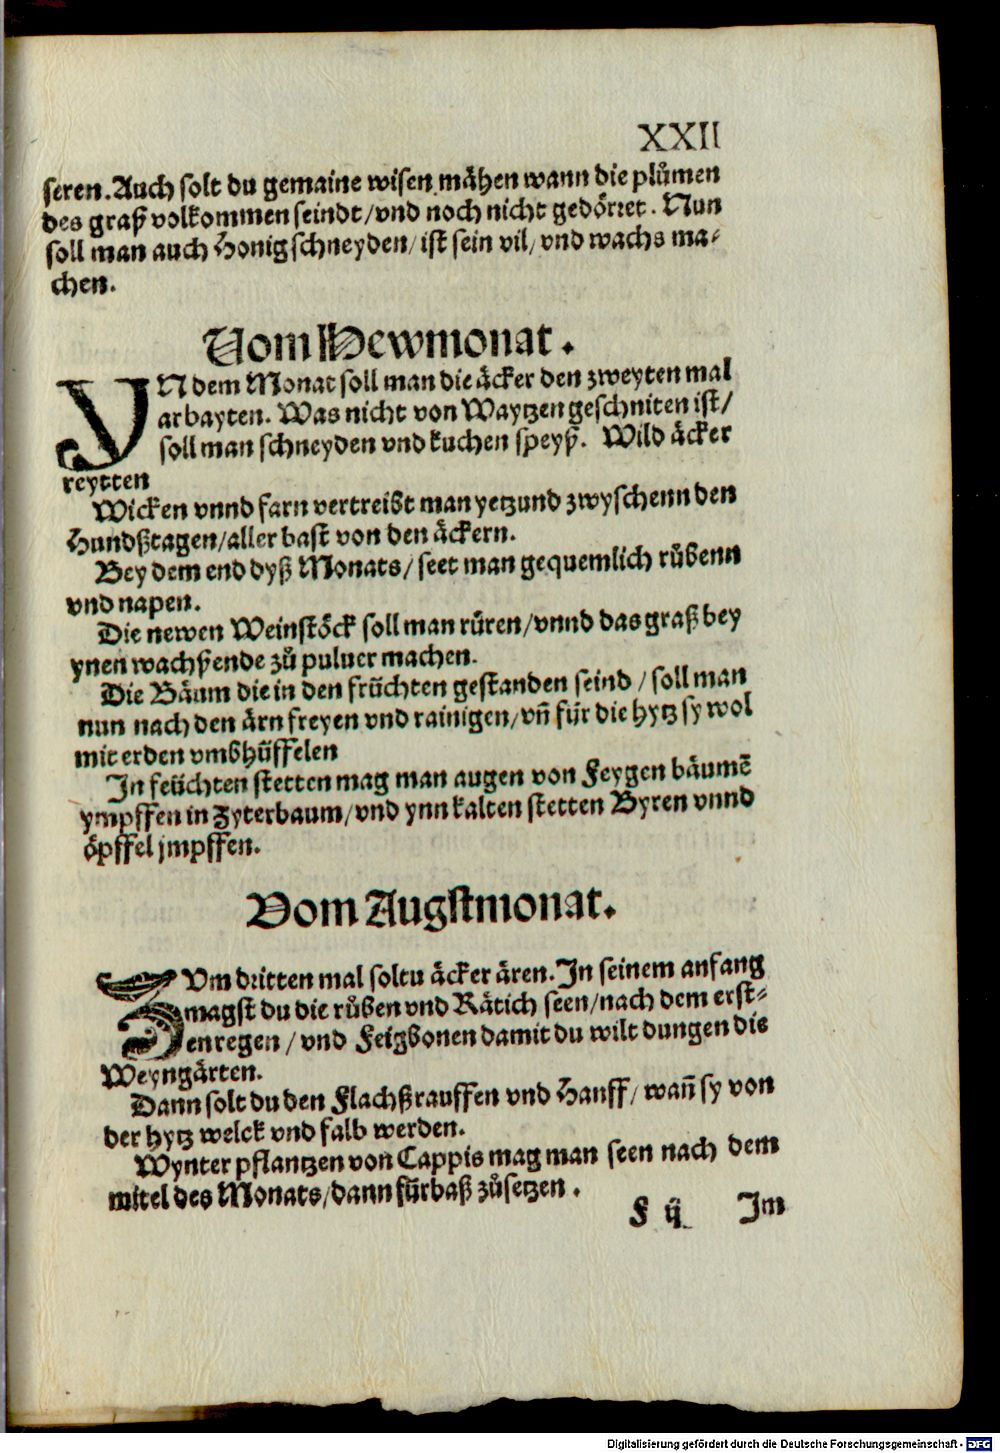 XXII
seren. Auch solt du gemaine wisen mähen wann die plůmen
des graß volkommen seindt/vnd noch nicht gedörret. Nun
soll man auch Honig schneyden/ ist sein vil/ vnd wachs ma⸗
chen.
Vom Hewmonat.
YN dem Monat soll man die äcker den zweyten mal
arbayten. Was nicht von Waytzen geschniten ist/
soll man schneyden vnd kuchen speyß. Wild äcker
reytten
Wicken vnnd farn vertreibt man yetzund zwyschenn den
Hundßtagen/aller bast von den äckern.
Bey dem end dyß Monats/ seet man gequemlich růbenn
vnd napen.
Die newen Weinstöck soll man rüren/vnnd das graß bey
ynen wachßende zů puluer machen.
Die Bäum die in den früchten gestanden seind / soll man
nun nach den ärn freyen vnd rainigen/vñ für die hytz sy wol
mit erden vmbhüffelen
In feüchten stetten mag man augen von Feygen bäumē
ympffen in Zyterbaum/vnd ynn kalten stetten Byren vnnd
öpffel jmpffen.
Vom Augstmonat.
ZVm dritten mal soltu äcker ären. In seinem anfang
magst du die růben vnd Rätich seen/nach dem erst⸗
enregen / vnd Feigbonen damit du wilt dungen die
Weyngärten.
Dann solt du den Flachß rauffen vnd Hanff/ wañ sy von
der hytz welck vnd falb werden.
Wynter pflantzen von Cappis mag man seen nach dem
mitel des Monats/dann fürbaß zůsetzen.
F ij Im
Digitalisierung gefördert durch die Deutsche Forschungsgemeinschaft - DFG